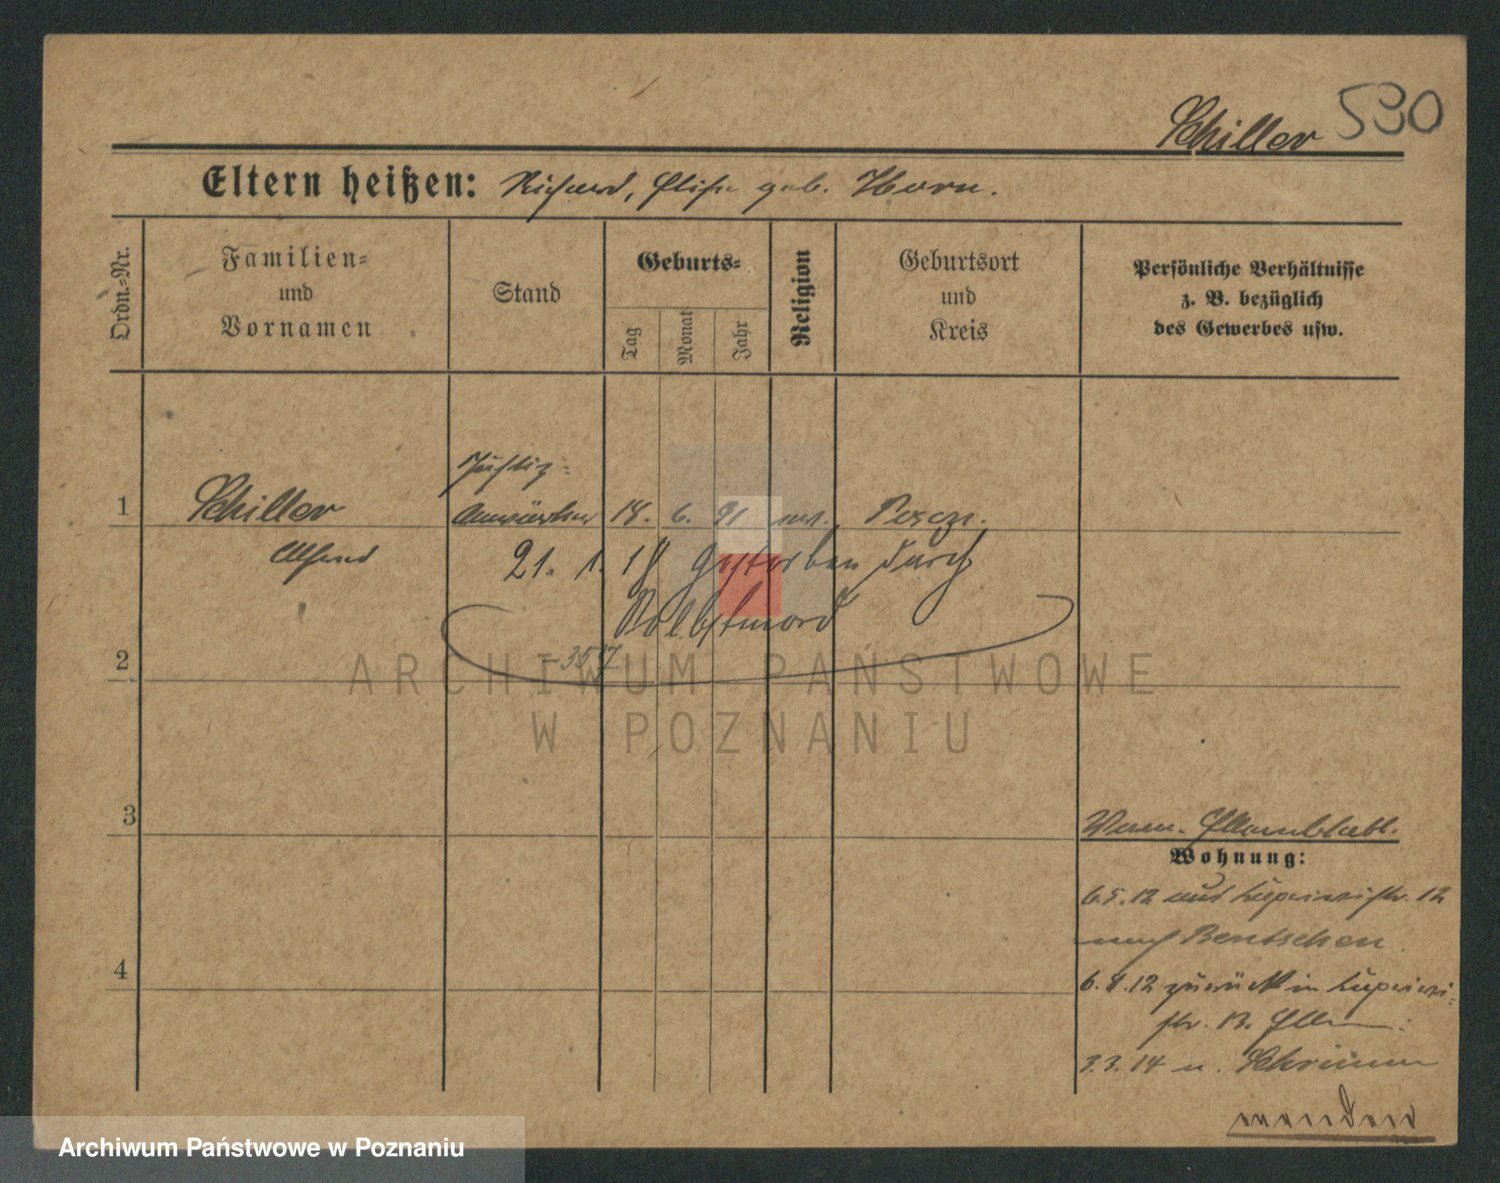 Schiller 530
Eltern heißen: Richard, Elise geb. Horn.
Ordn.-Nr.
Familien-
und
Vornamen
Stand
Geburts-
Tag
Monat
Jahr
Religion
Geburtsort
und
Kreis
Persönliche Verhältnisse
z. B. bezüglich
des Gewerbes usw.
Justiz-
1 Schiller Anwärter 18. 6. 91
Alfred
21. 1. 18 Gestorben durch
Selbstmord
357
2
ARCHIWUM PAŃSTWOWE
W POZNANIU
3
Wohnung:
6.5.12 aus 12
nach Bentschen
4
6.8.12 zurück in
str. 12. Eltern
3.3.14 n. Schrimm
Archiwum Państwowe w Poznaniu